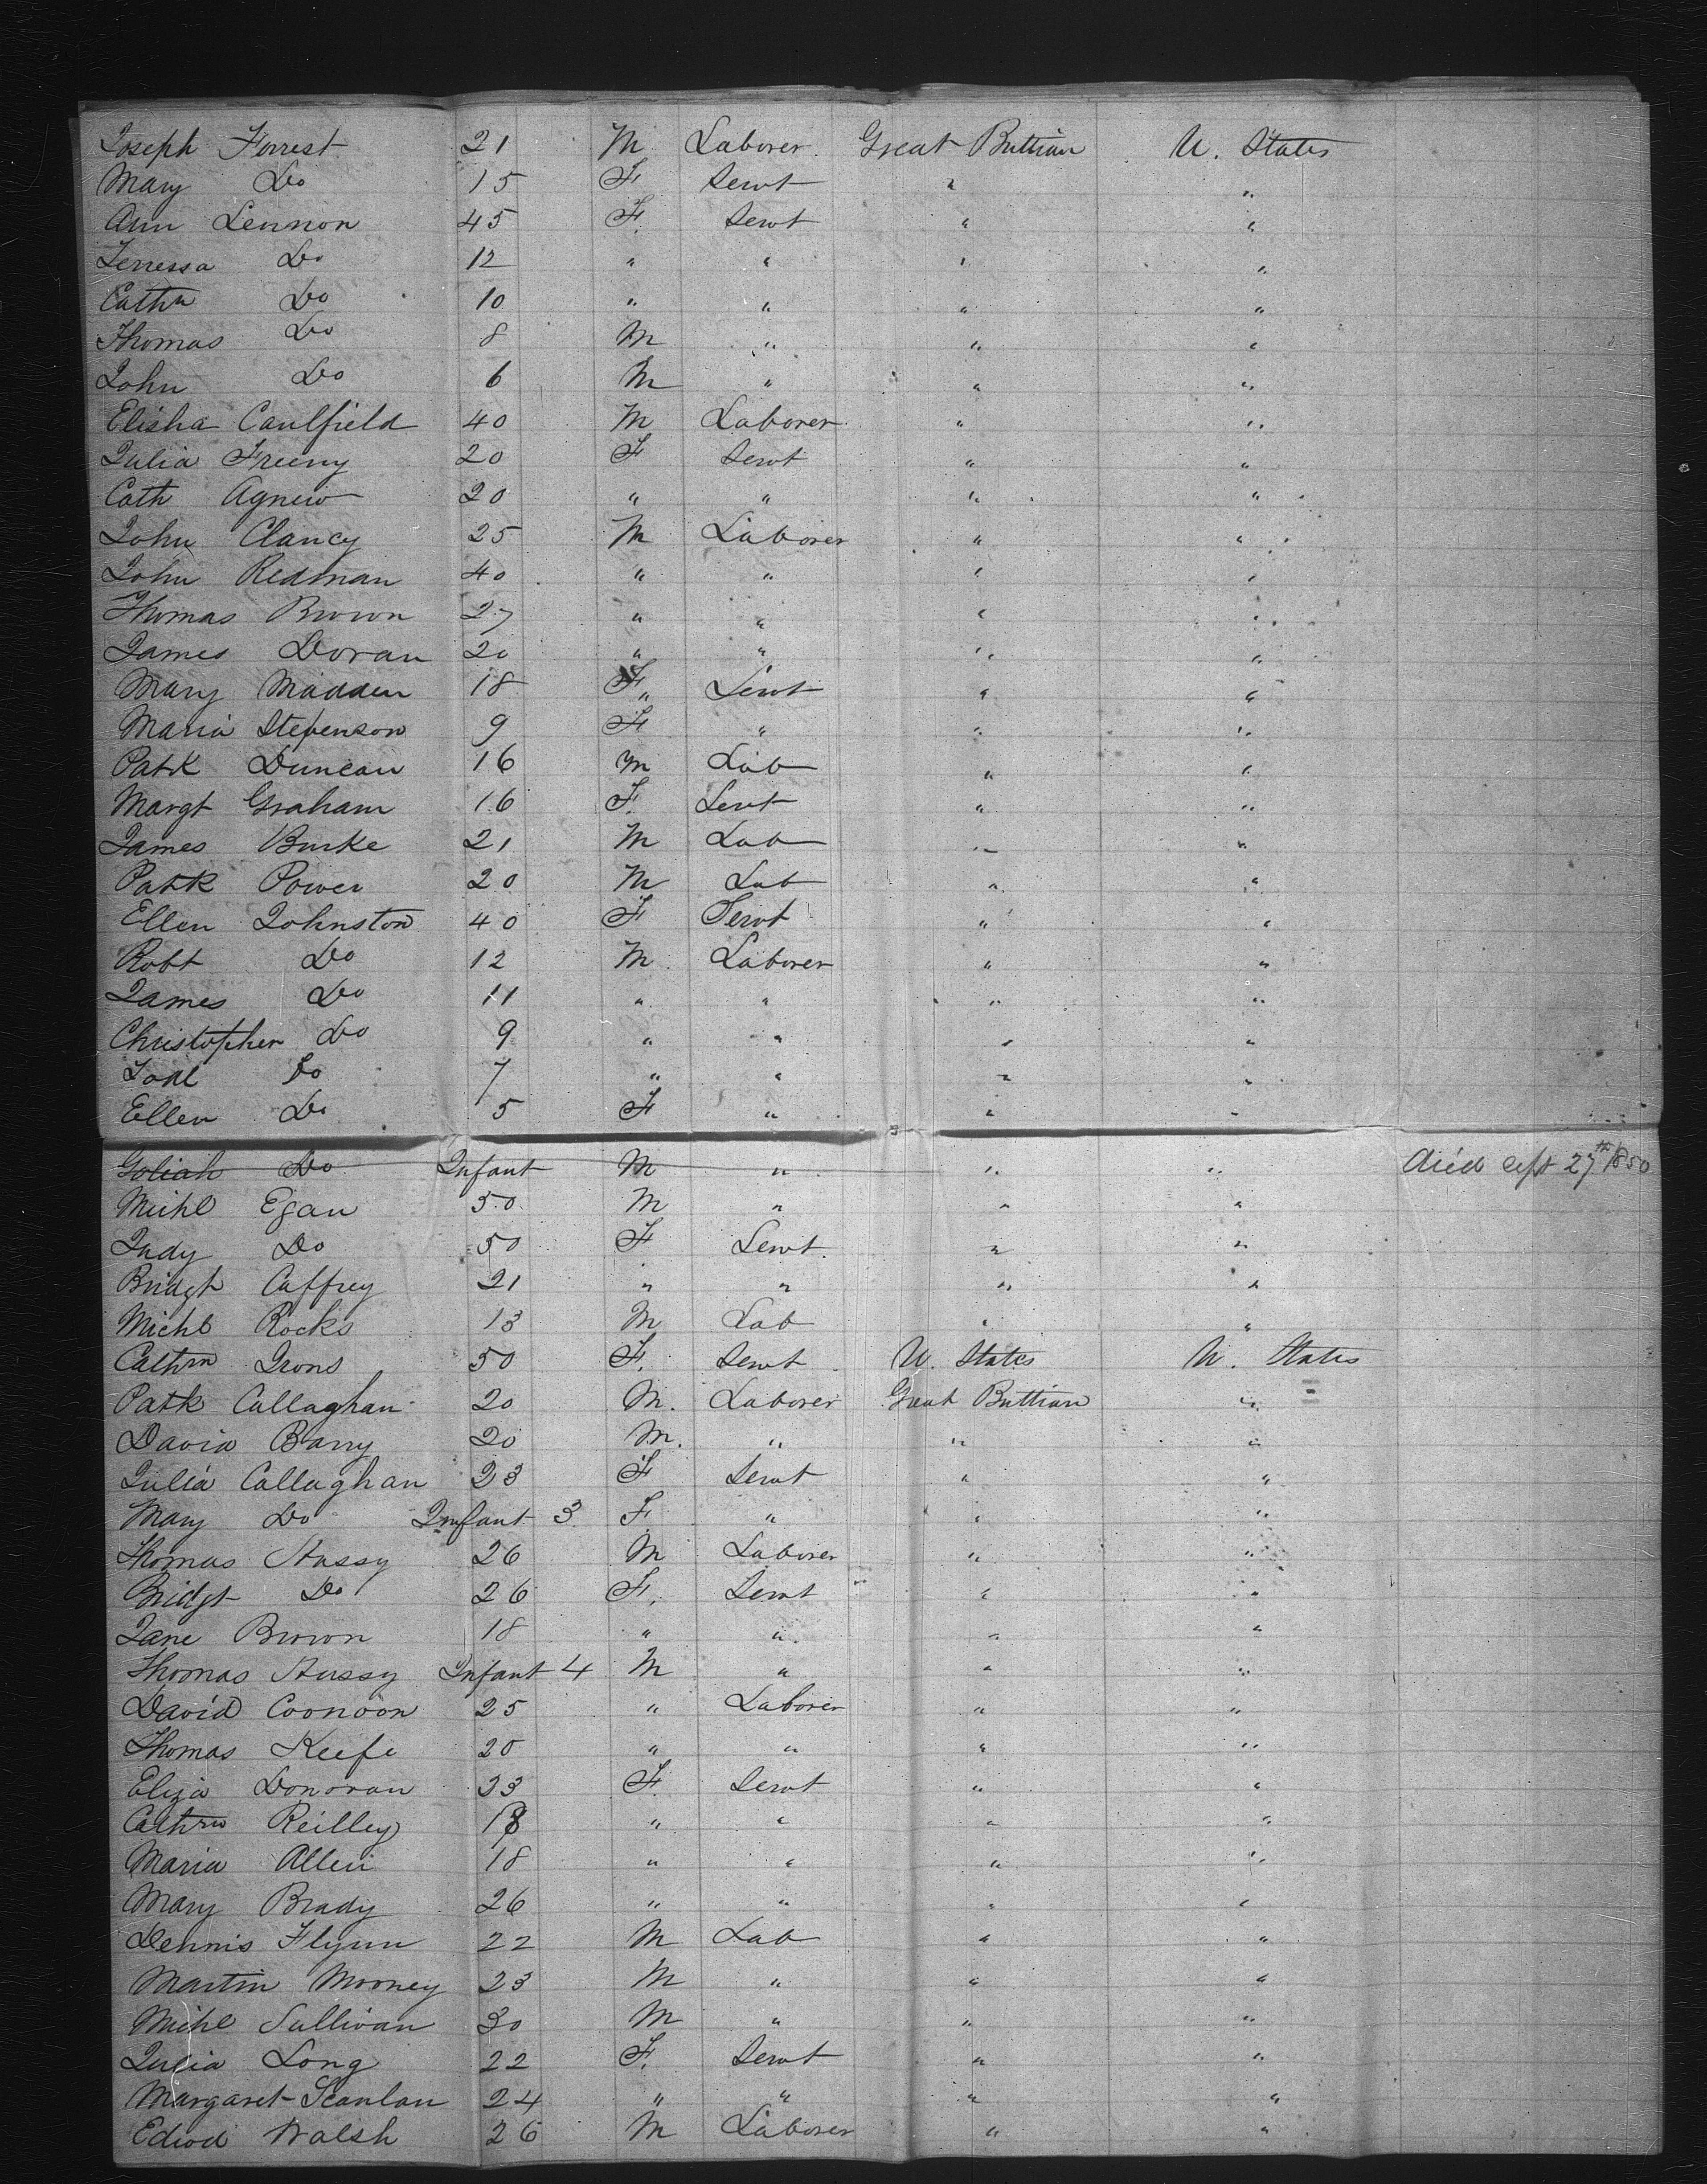 Joseph Forrest 21 M Laborer Great Brittian U. States
Mary Do 15 F Servt " "
Ann Lennon 45 F. Servt " "
Terressa Do 12 " " " "
Cathn Do 10 " " " "
Thomas Do 8 M " " "
John Do 6 M " " "
Elisha Caulfield 40 M Laborer " "
Julia Freeny 20 F Servt " "
Cath Agnew 20 " " " "
John Clancy 25 M Laborer " "
John Redman 40 " " " "
Thomas Brown 27 " " " "
James Doran 20 " " " "
Mary Madden 18 F " Servt " "
Maria Stepenson 9 F " " "
Patk Duncan 16 M Lab " "
Margt Graham 16 F. Servt " "
James Burke 21 M Lab " "
Patk Power 20 M Lab " "
Ellen Johnston 40 F Servt " "
Robt Do 12 M Laborer " "
James Do 11 " " " "
Christopher Do 9 " " " "
Do 7 " " " "
Ellen Do 5 F " " "
Goliah Do Infant M " " " died sept 27th 1850
Michl Egan 50 M " " "
Judy Do 50 F Servt " "
Bridgt Caffrey 21 " " " "
Michl Rocks 13 M Lab " "
Cathrn Irons 50 F. Servt U. States U. States
Patk Callaghan 20 M. Laborer Great Brittian "
David Barry 20 M. " " "
Julia Callaghan 23 F Servt " "
Mary Do Infant 3 F. " " "
Thomas Hussy 26 M Laborer " "
Bridgt Do 26 F. Servt " "
Jane Brown 18 " " " "
Thomas Hussy Infant 4 M " " "
David Coonoon 25 " Laborer " "
Thomas Keefe 20 " " " "
Eliza Donovan 23 F. Servt " "
Cathrn Reilley 18 " " " "
Maria Allen 18 " " " "
Mary Brady 26 " " " "
Dennis Flynn 22 M Lab " "
Martin Mooney 23 M " " "
Michl Sullivan 30 M " " "
Julia Long 22 F. Servt " "
Margaret Scanlan 24 " " " "
Edwd Walsh 26 M Laborer " "